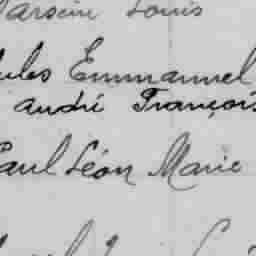 Marsein Louis
Jules Emmanuel
André François
Paul Léon Marie